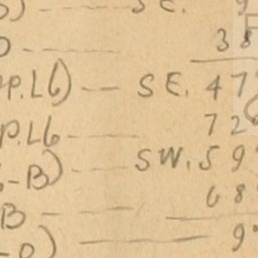 S) ---- SE. 9
O ------ 38
P.L6) --- SE. 47
P.L6 ------ 72
-B) ---- SW. 59
B ------ 68
-O) ------ 9